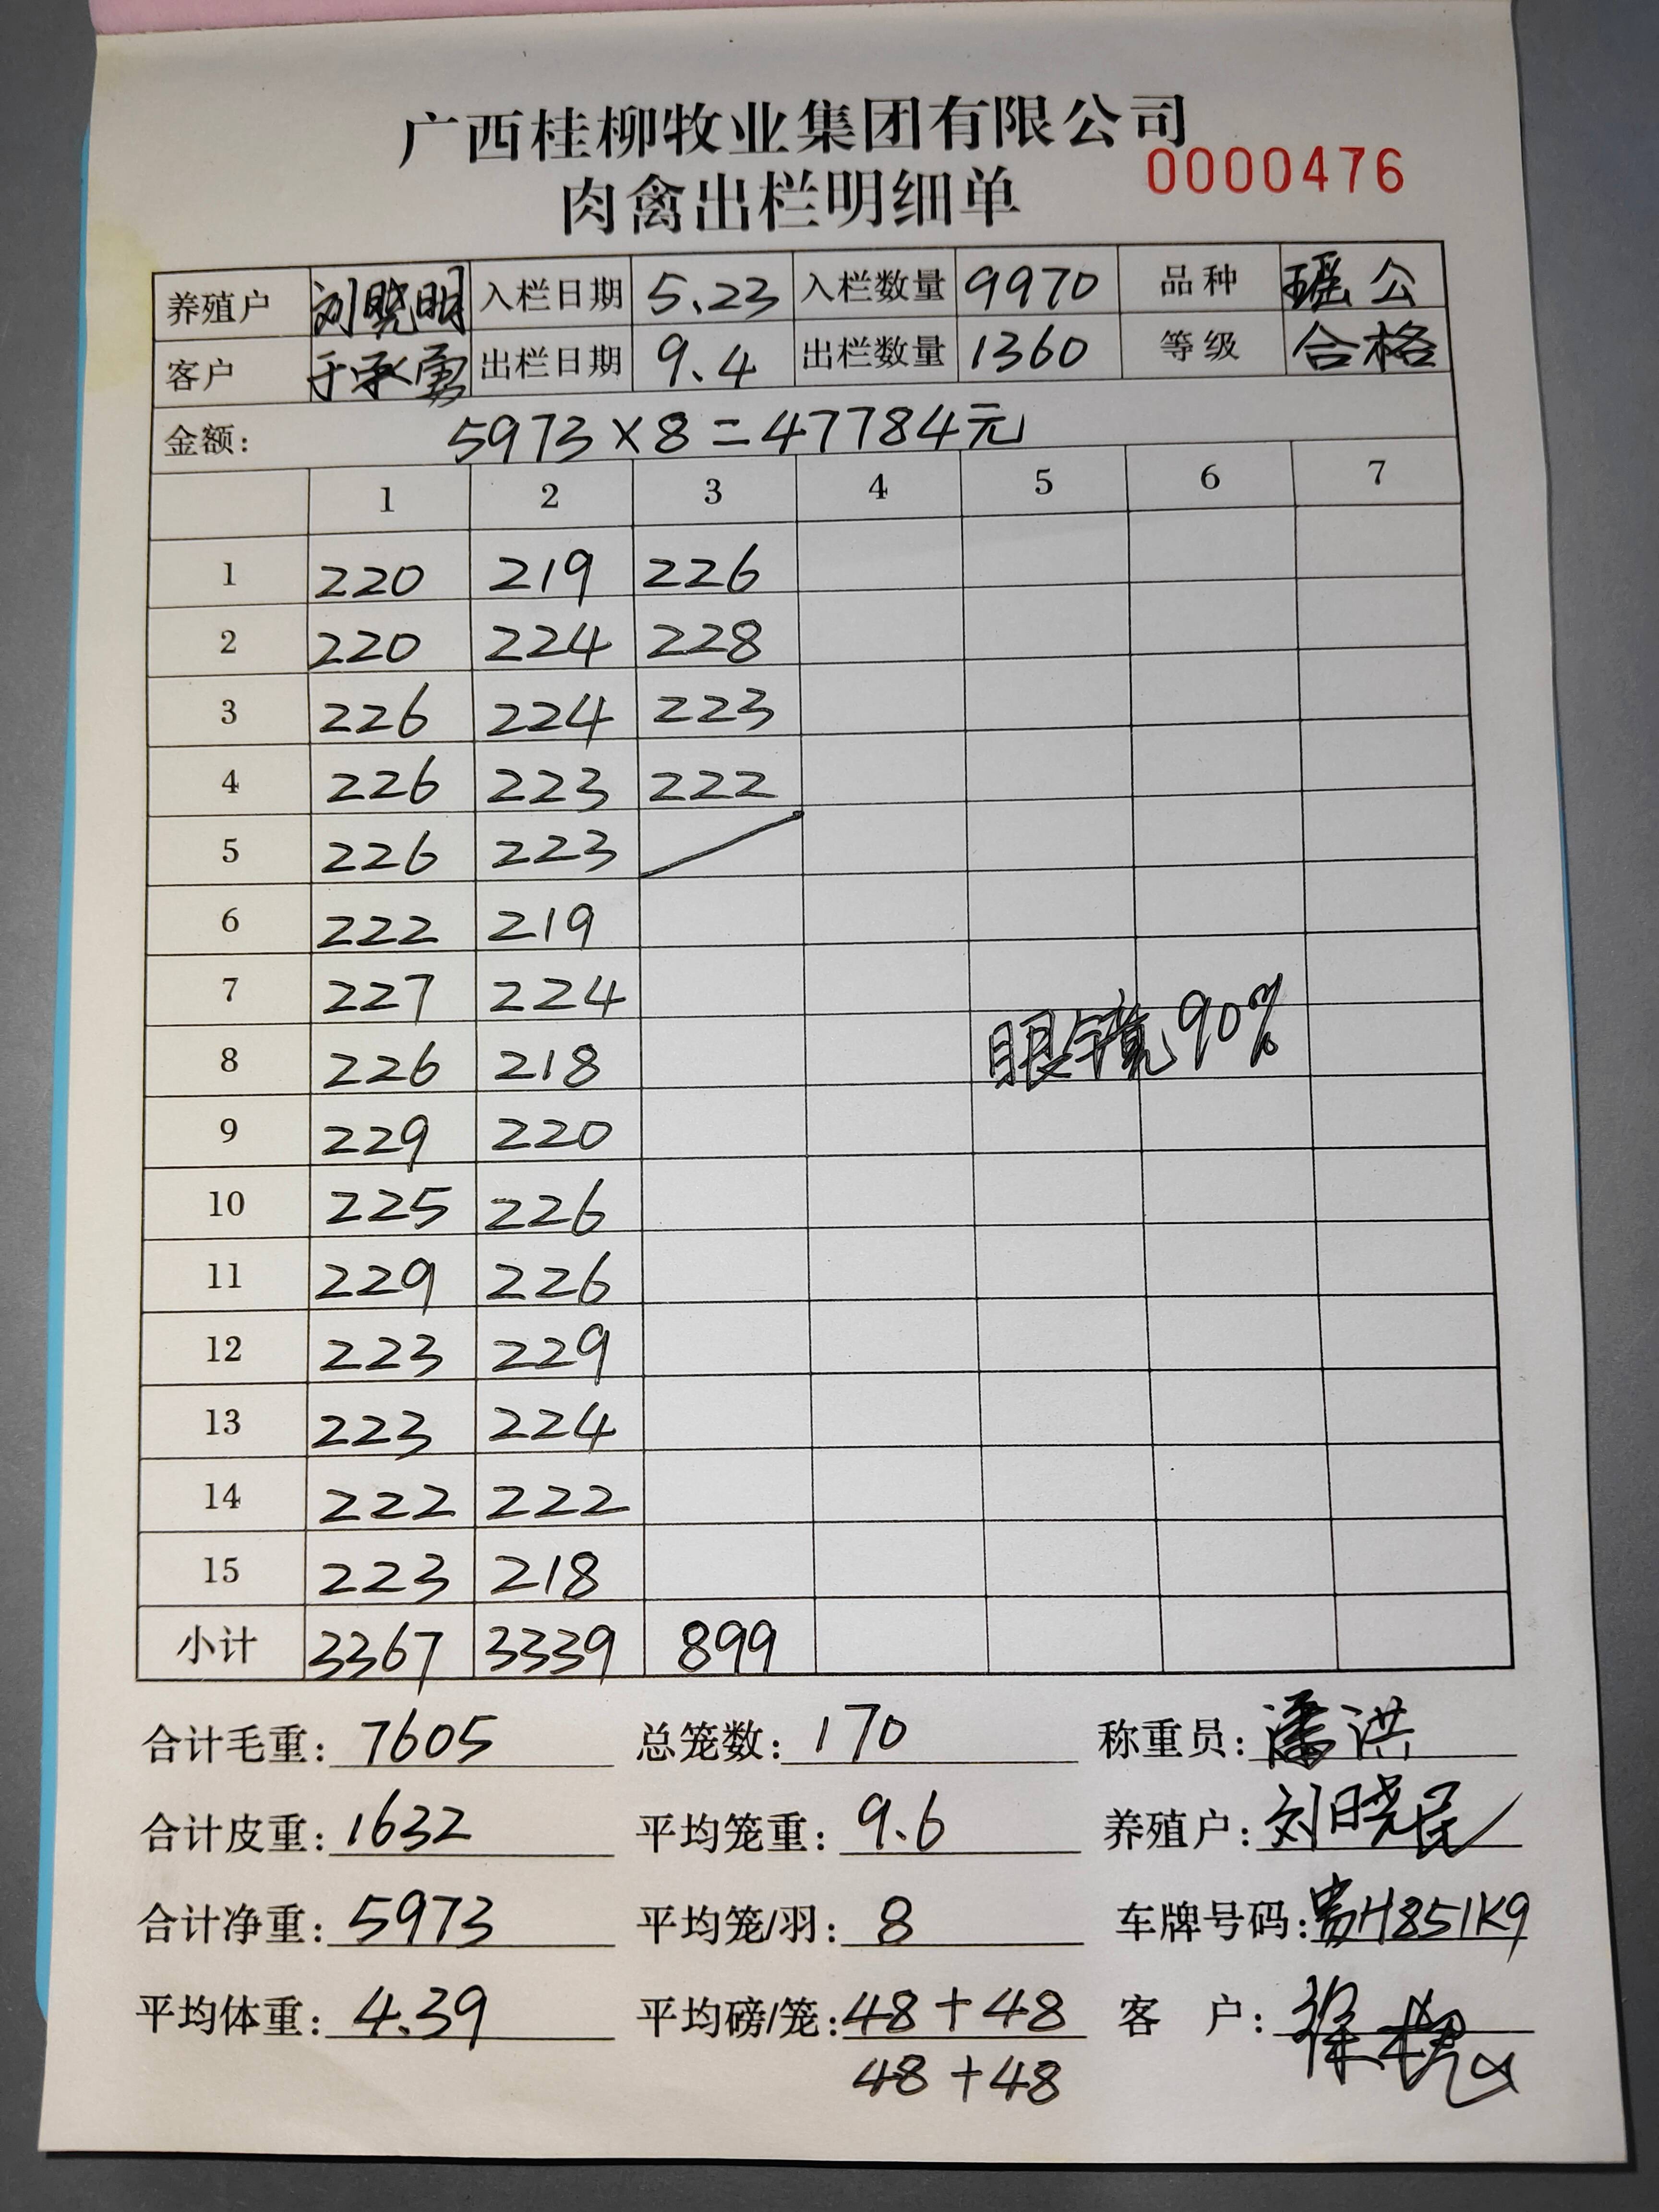 广西桂柳牧业集团有限公司
肉禽出栏明细单 0000476
养殖户 刘晓明 入栏日期 5.23 入栏数量 9970 品种 瑶公
客户 于承勇 出栏日期 9.4 出栏数量 1360 等级 合格
金额: 5973×8=47784元
1 2 3 4 5 6 7
1 220 219 226
2 220 224 228
3 226 224 223
4 226 223 222
5 226 223
6 222 219
7 227 224
眼镜90%
8 226 218
9 229 220
10 225 226
11 229 226
12 223 229
13 223 224
14 222 222
15 223 218
小计 3367 3339 899
合计毛重: 7605 总笼数: 170 称重员: 潘洪
合计皮重: 1632 平均笼重: 9.6 养殖户: 刘晓民
合计净重: 5973 平均笼/羽: 8 车牌号码: 贵H851K9
平均体重: 4.39 平均磅/笼: 48+48 客 户: 徐
48+48